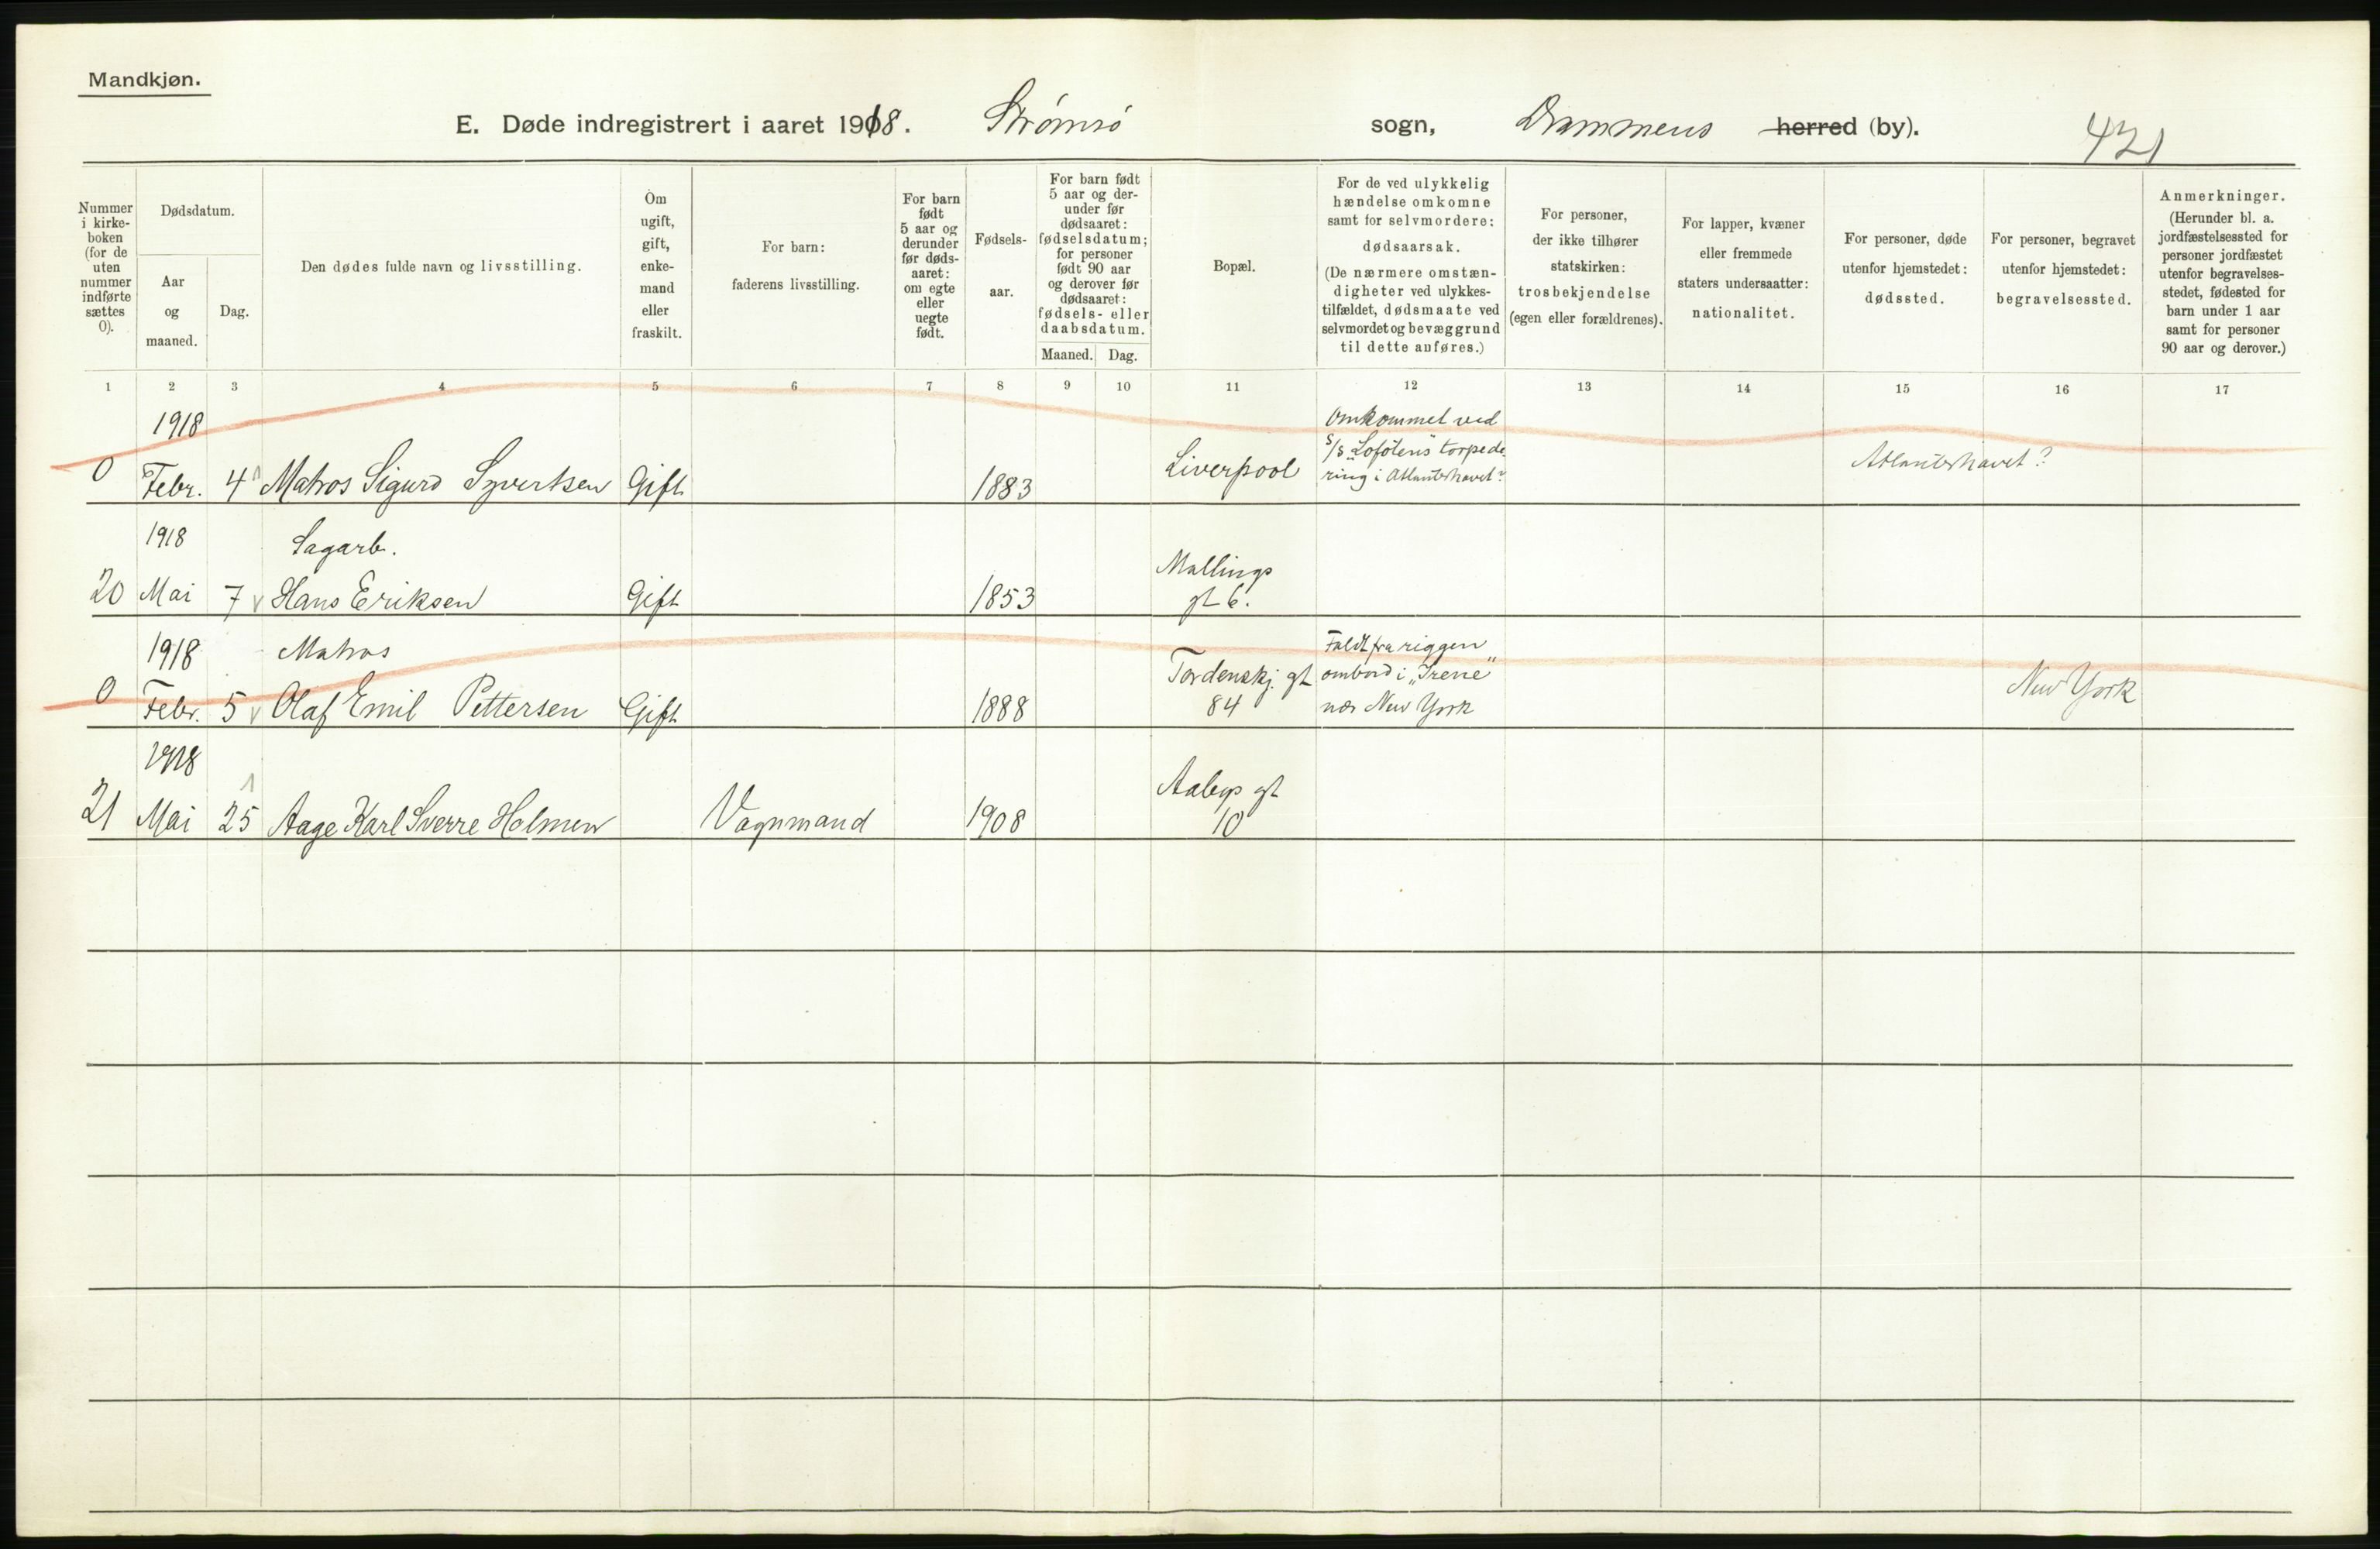 Mandkjøn.
E. Døde indregistrert i aaret 1918. Strømsø sogn, Drammens herred (by). 421
Nummer i kirke-boken (for de uten nummer indførte sættes 0).
Dødsdatum.
Aar og maaned.
Dag.
Den dødes fulde navn og livsstilling.
Om ugift, gift, enke-mand eller fraskilt.
For barn: faderens livsstilling.
For barn født 5 aar og derunder før døds-aaret: om egte eller uegte født.
Fødsels-aar.
For barn født 5 aar og der-under før dødsaaret: fødselsdatum; for personer født 90 aar og derover før dødsaaret: fødsels- eller daabsdatum.
Maaned. Dag.
Bopæl.
For de ved ulykkelig hændelse omkomne samt for selvmordere: dødsaarsak. (De nærmere omstæn-digheter ved ulykkes-tilfældet, dødsmaate ved selvmordet og bevæggrund til dette anføres.)
For personer, der ikke tilhører statskirken: trosbekjendelse (egen eller forældrenes).
For lapper, kvæner eller fremmede staters undersaatter: nationalitet.
For personer, døde utenfor hjemstedet: dødssted.
For personer, begravet utenfor hjemstedet: begravelsessted.
Anmerkninger. (Herunder bl. a. jordfæstelsessted for personer jordfæstet utenfor begravelses-stedet, fødested for barn under 1 aar samt for personer 90 aar og derover.)
1 2 3 4 5 6 7 8 9 10 11 12 13 14 15 16 17
1918 Omkommet ved
S/S „Lofotens" torpede-
0 Febr. 4 Matros Sigurd Syvertsen Gift 1883 Liverpool ring i Atlanterhavet? Atlanterhavet?
1918 Sagarb. Mallings
20 Mai 7 Hans Eriksen Gift 1853 gt 6.
1918 Matros Faldt fra riggen
Tordenskj. gt ombord i „Irene"
0 Febr. 5 Olaf Emil Pettersen Gift 1888 84 nær New York New York
1918 Aabys gt
21 Mai 25 Aage Karl Sverre Holmen Vognmand 1908 10